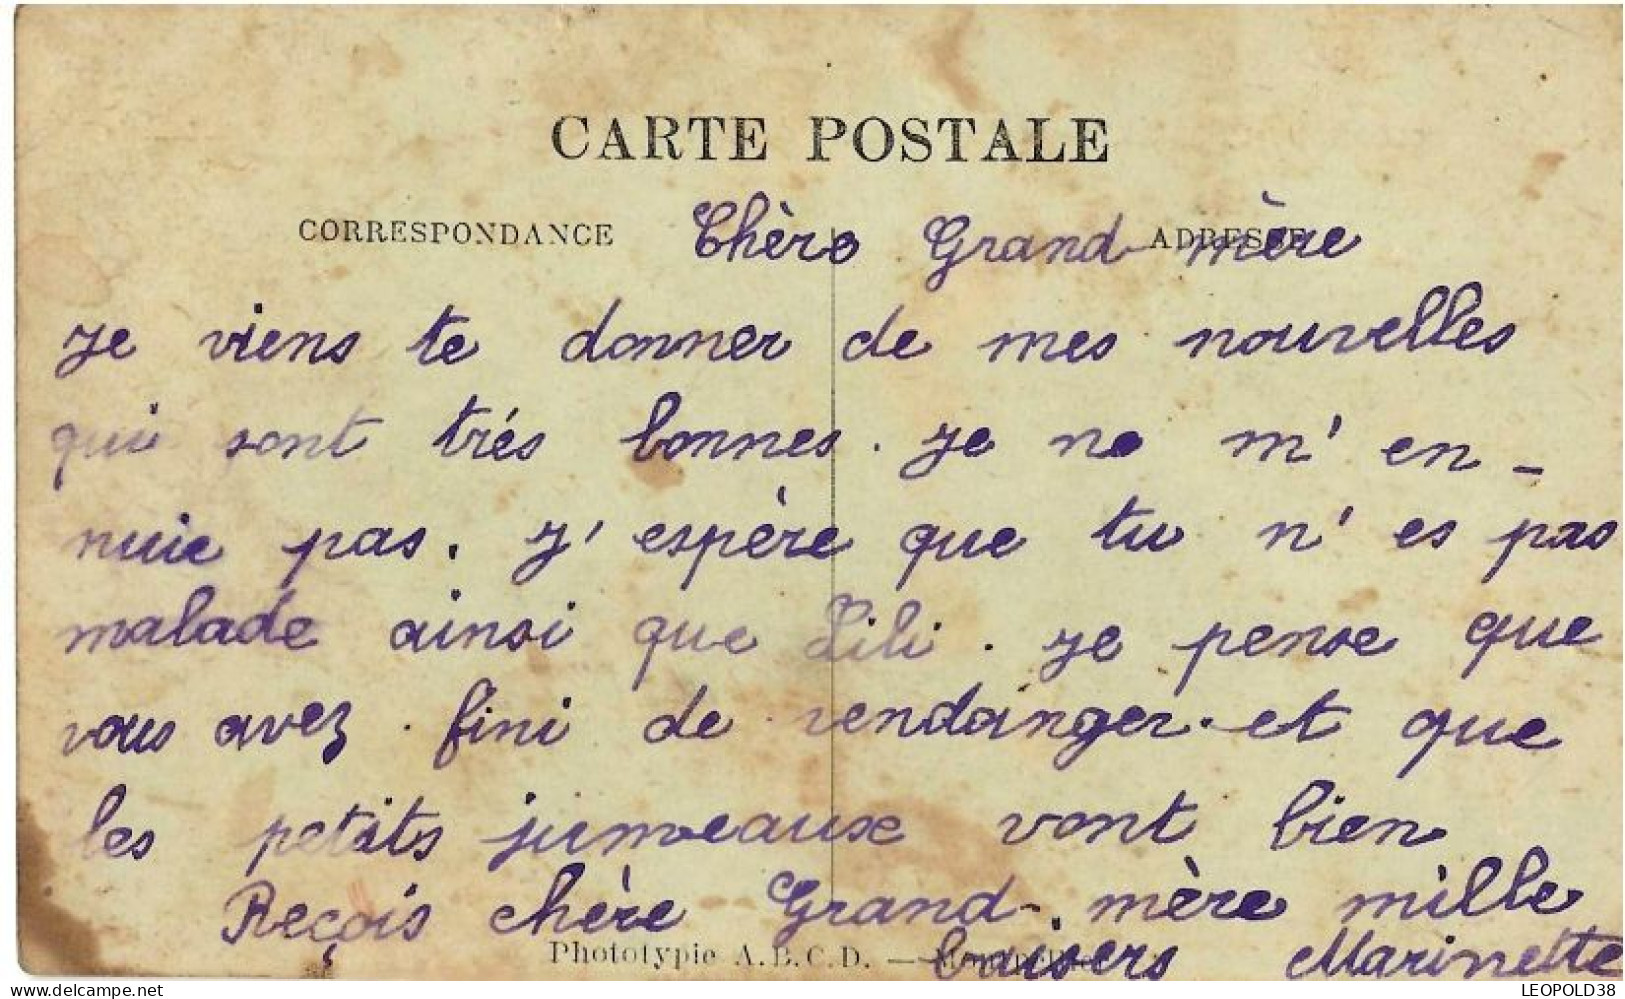 CARTE POSTALE
CORRESPONDANCE
ADRESSE
Chère Grand-mère
je viens te donner de mes nouvelles
qui sont trés bonnes. je ne m'en-
nuie pas. J'espère que tu n'es pas
malade ainsi que Lili. je pense que
vous avez fini de vendanger et que
les petits jumeaux vont bien
Reçois chère Grand-mère mille
baisers Marinette
Phototypie A.B.C.D. —
LEOPOLD38